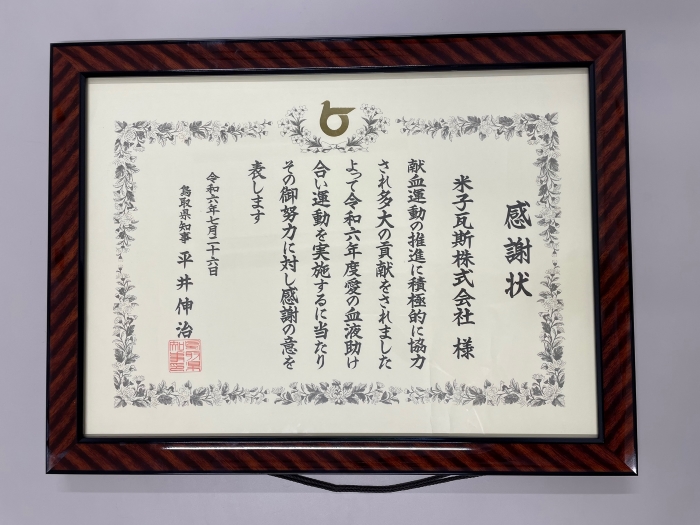 感謝状
米子瓦斯株式会社 様
献血運動の推進に積極的に協力
され多大の貢献をされました
よって令和六年度愛の血液助け
合い運動を実施するに当たり
その御努力に対し感謝の意を
表します
令和六年七月二十六日
鳥取県知事 平井伸治